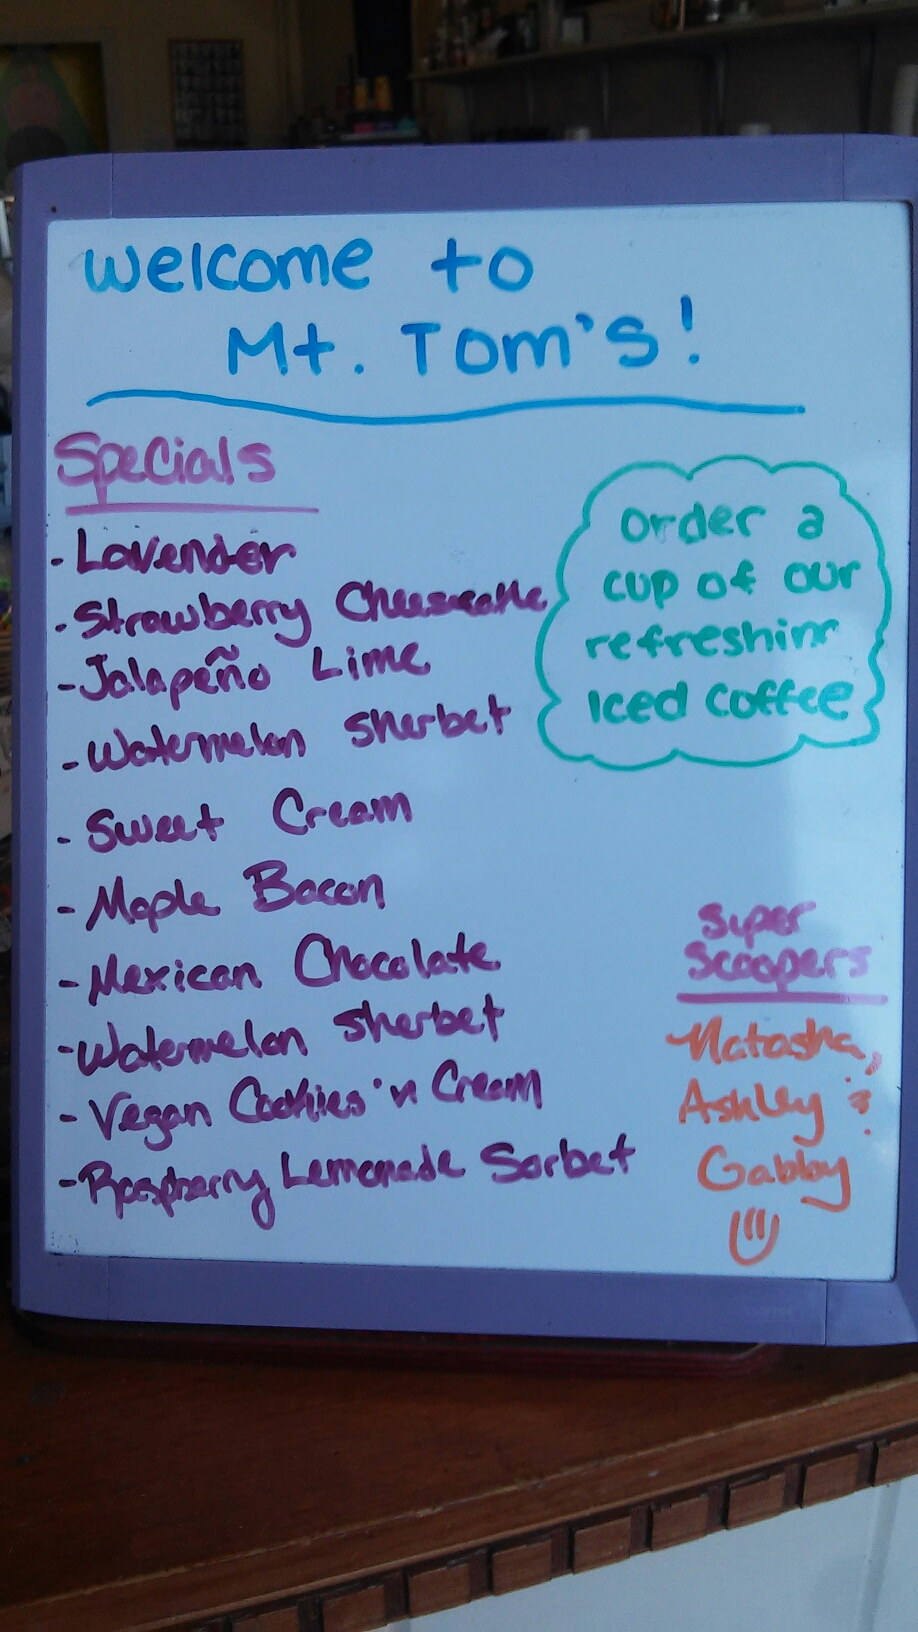 Welcome to
Mt. Tom's!
Specials
- Lavender
- Strawberry Cheesecake
- Jalapeño Lime
- Watermelon Sherbet
- Sweet Cream
- Maple Bacon
- Mexican Chocolate
- Watermelon Sherbet
- Vegan Cookies 'n Cream
- Raspberry Lemonade Sorbet
Order a
cup of our
refreshing
Iced Coffee
Super
Scoopers
Natasha,
Ashley &
Gabby